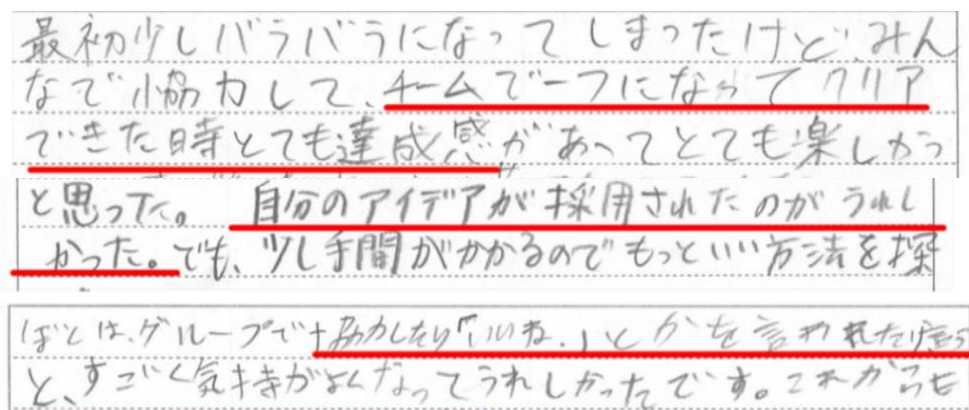 最初少しバラバラになってしまったけど、みん
なで協力して、チームで一つになってクリア
できた時とても達成感があってとても楽しかっ
と思った。 自分のアイデアが採用されたのがうれし
かった。でも、少し手間がかかるのでもっといい方法を探
ぼくは、グループで協力したり「いいね。」とかを言われたりする
と、すごく気持がよくなってうれしかったです。これからも